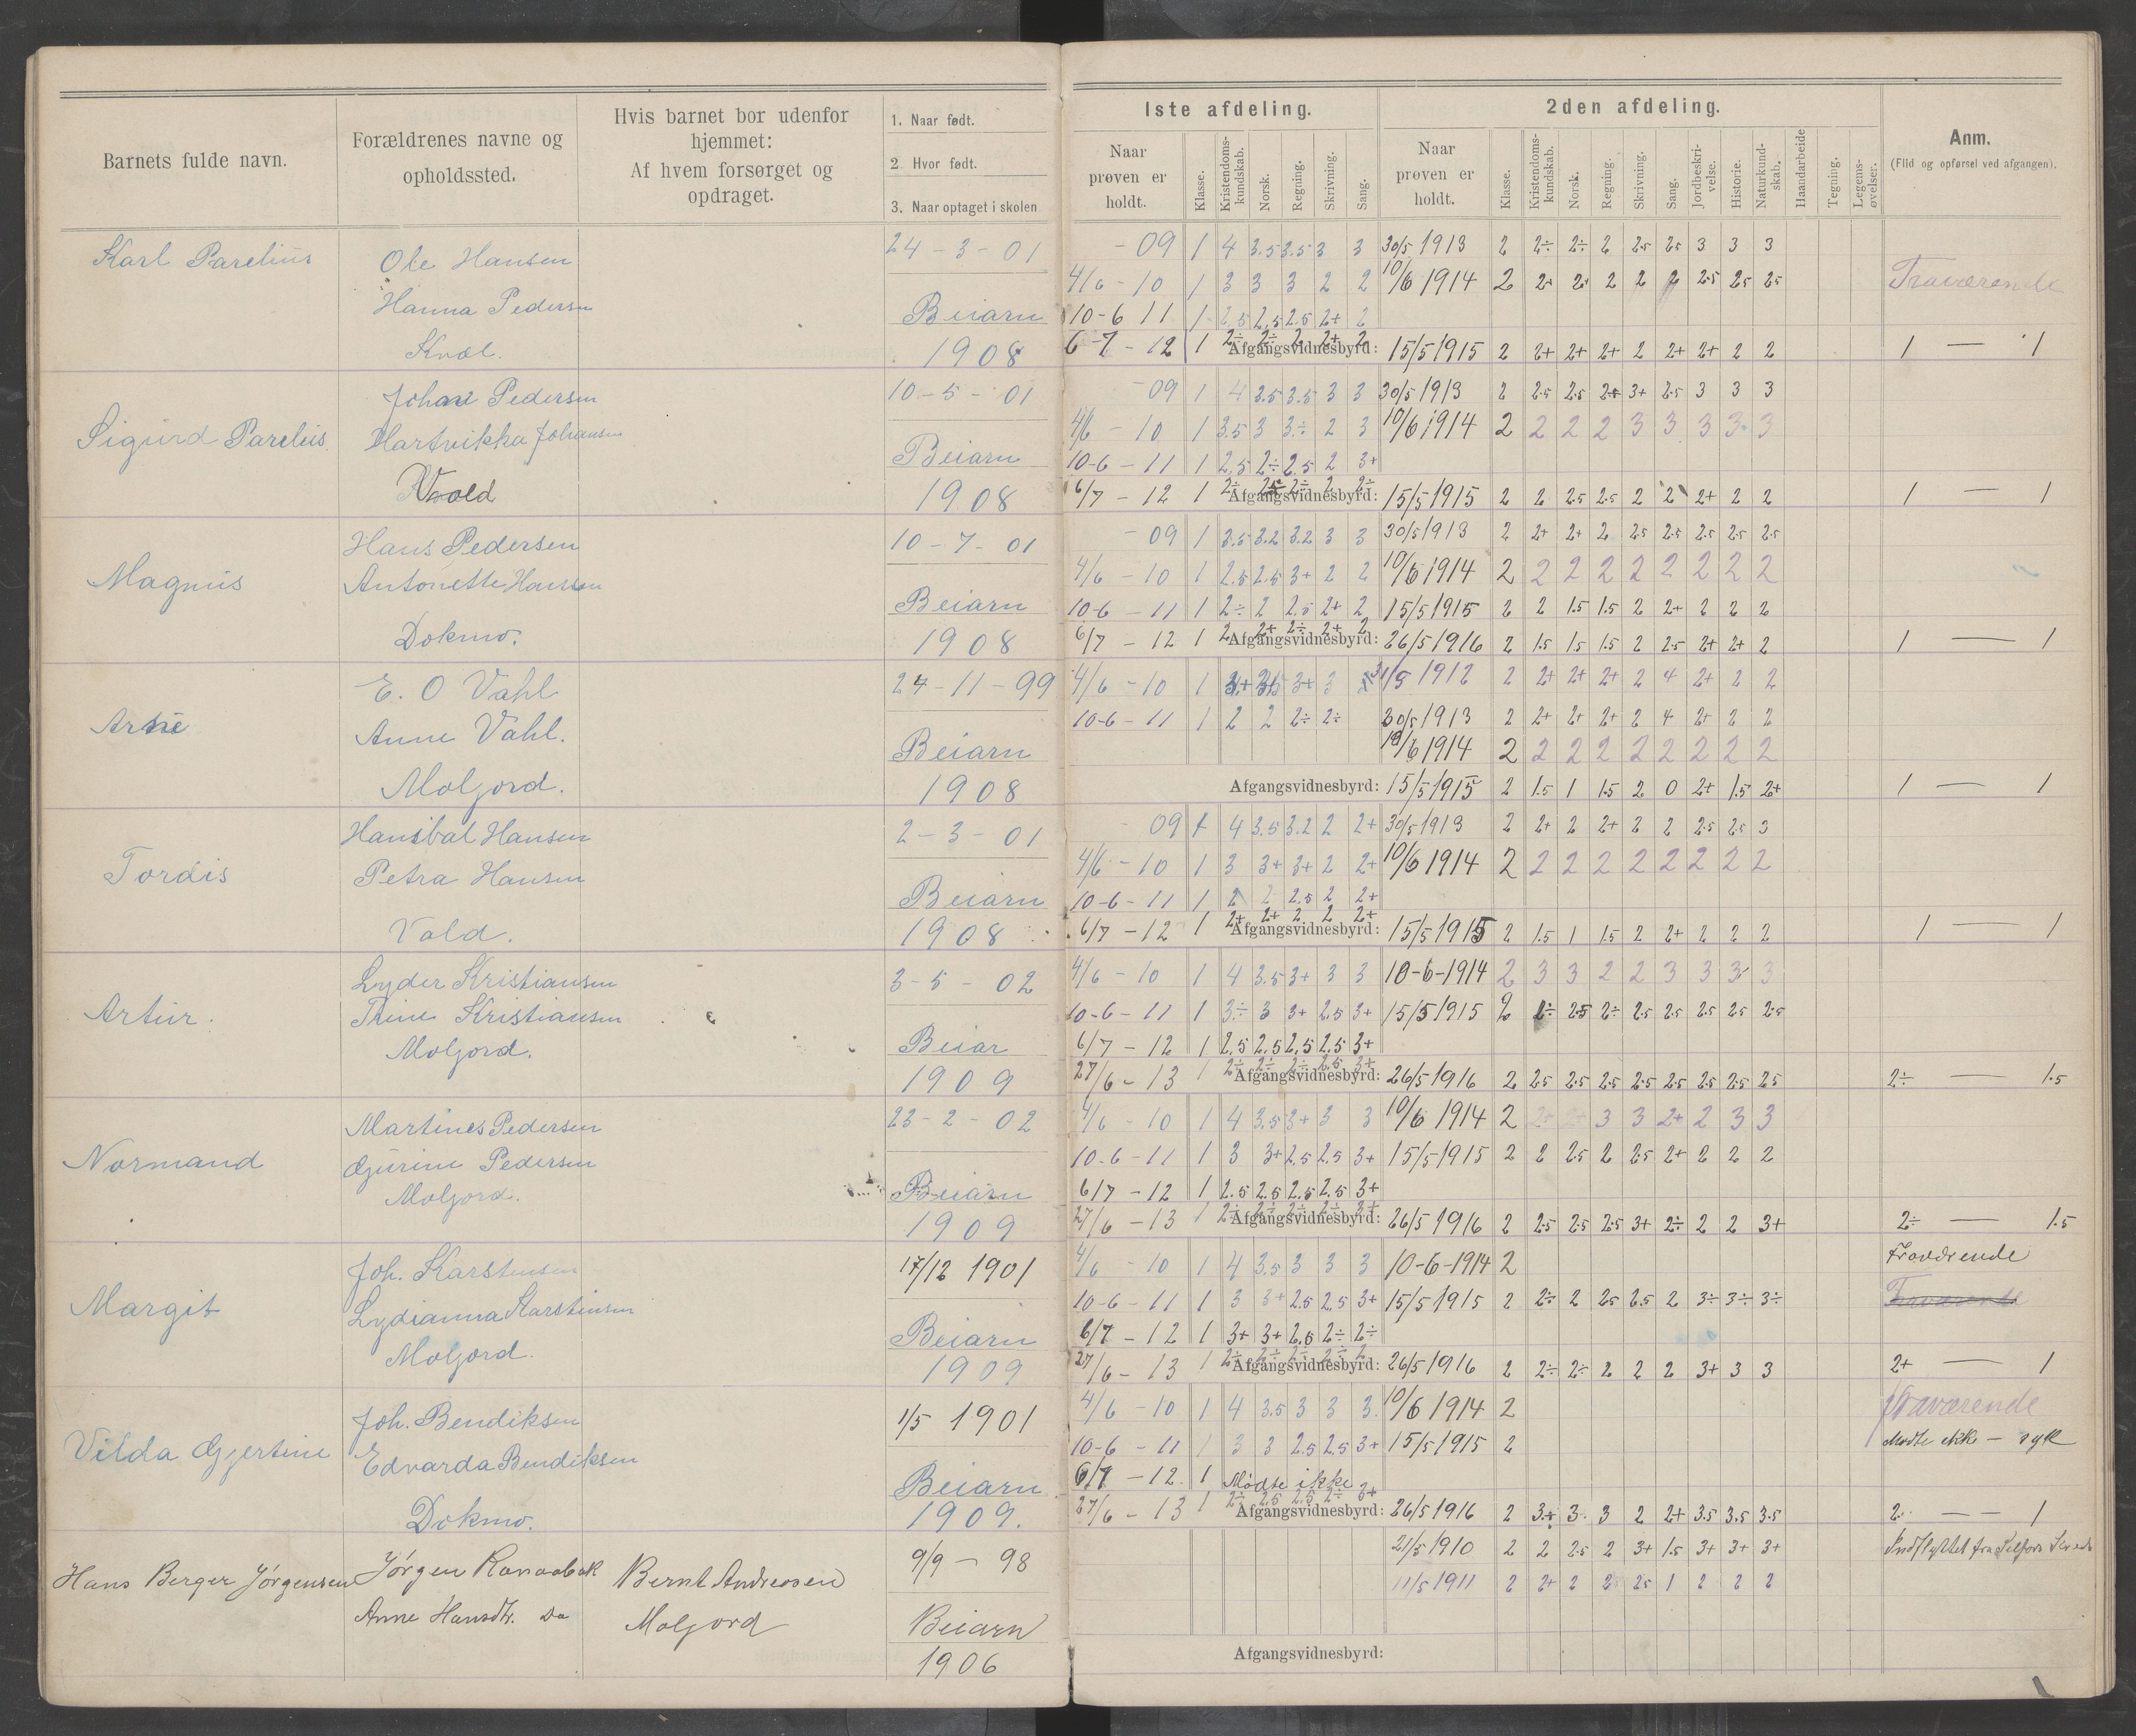 Barnets fulde navn.
Forældrenes navne og opholdssted.
Hvis barnet bor udenfor hjemmet:
Af hvem forsørget og opdraget.
1. Naar født.
2. Hvor født.
3. Naar optaget i skolen
1ste afdeling.
Naar prøven er holdt.
Klasse.
Kristendomskundskab.
Norsk.
Regning.
Skrivning.
Sang.
2den afdeling.
Naar prøven er holdt.
Klasse.
Kristendomskundskab.
Norsk.
Regning.
Skrivning.
Sang.
Jordbeskrivelse.
Historie.
Naturkundskab.
Haandarbeide
Tegning.
Legemsøvelser.
Anm.
(Flid og opførsel ved afgangen).
Karl Parelius
Ole Hansen
Hanna Pedersen
24-3-01
Beiarn
1908
-09 1 4 3.5 3.5 3 3 30/5 1913 2 2÷ 2÷ 2 2.5 2.5 3 3 3
4/6-10 1 3 3 3 2 2 10/6 1914 2 2+ 2+ 2 2 2 2.5 2.5 2.5 Fraværende
10-6 11 1 2.5 2.5 2.5 2+ 2
6-7-12 1 2÷ 2÷ 2 2+ 2 Afgangsvidnesbyrd: 15/5 1915 2 2+ 2+ 2+ 2 2+ 2+ 2 2 1 — 1
Sigurd Parelius
Johan Pedersen
Hartvikka Johansen
Vold
10-5-01
Beiarn
1908
-09 1 4 3.5 3.5 3 3 30/5 1913 2 2.5 2.5 2+ 3+ 2.5 3 3 3
4/6-10 1 3.5 3 3÷ 2 3 10/6 1914 2 2 2 2 3 3 3 3 3
10-6-11 1 2.5 2÷ 2.5 2 3+
6/7-12 1 2÷ 2.5 2÷ 2 2÷ Afgangsvidnesbyrd: 15/5 1915 2 2 2.5 2.5 2 2 2+ 2 2 1 — 1
Magnus
Hans Pedersen
Antonette Hansen
Dokmo.
10-7-01
Beiarn
1908
-09 1 3.5 3.2 3.2 3 3 30/5 1913 2 2+ 2+ 2 2.5 2.5 2.5 2.5 2.5
4/6-10 1 2.5 2.5 3+ 2 2 10/6 1914 2 2 2 2 2 2 2 2 2
10-6-11 1 2÷ 2 2.5 2+ 2 15/5 1915 2 2 1.5 1.5 2 2+ 2 2 2
6/7-12 1 2 2+ 2÷ 2+ 2 Afgangsvidnesbyrd: 26/5 1916 2 1.5 1.5 1.5 2 2.5 2+ 2+ 2 1 — 1
Arne
E. O Vahl
Anne Vahl.
Moljord.
24-11-99
Beiarn
1908
4/6-10 1 3+ 3+ 3 31/5 1912 2 2+ 2+ 2+ 2 4 2+ 2 2
10-6-11 1 2 2 2÷ 2÷ 30/5 1913 2 2+ 2+ 2+ 2 4 2+ 2 2
10/6 1914 2 2 2 2 2 2 2 2 2
Afgangsvidnesbyrd: 15/5 1915 2 1.5 1 1.5 2 0 2+ 1.5 2+ 1 — 1
Tordis
Hansbal Hansen
Petra Hansen
Vold.
2-3-01
Beiarn
1908
09 1 4 3.5 3.2 2 2+ 30/5 1913 2 2+ 2 2+ 2 2 2.5 2.5 3
4/6-10 1 3 3+ 3+ 2 2+ 10/6 1914 2 2 2 2 2 2 2 2 2
10-6-11 1 2 2 2.5 2 2+
6/7-12 1 2+ 2+ 2 2 2+ Afgangsvidnesbyrd: 15/5 1915 2 1.5 1 1.5 2 2+ 2 2 2 1 — 1
Artur.
Lyder Kristiansen
Trine Kristiansen
Moljord.
3-5-02
Beiar
1909
4/6-10 1 4 3.5 3+ 3 3 10-6-1914 2 3 3 2 2 3 3 3 3
10-6-11 1 3÷ 3 3+ 2.5 3+ 15/5 1915 2 2÷ 2.5 2÷ 2.5 2.5 2.5 2.5 2.5
6/7-12 1 2.5 2.5 2.5 2.5 3+
27/6-13 1 2÷ 2÷ 2÷ 2.5 3+ Afgangsvidnesbyrd: 26/5 1916 2 2.5 2.5 2.5 2.5 2.5 2.5 2.5 2.5 2÷ — 1.5
Normand
Martines Pedersen
Gjurine Pedersen
Moljord.
23-2-02
Beiarn
1909
4/6-10 1 4 3.5 3+ 3 3 10/6 1914 2 3 3 2+ 2 3 3
10-6-11 1 3 3+ 2.5 2.5 3+ 15/5 1915 2 2 2.5 2 2.5 2+ 2 2 2
6/7-12 1 2.5 2.5 2.5 2.5 3+
27/6-13 1 2÷ 2÷ 2÷ 2÷ 3+ Afgangsvidnesbyrd: 26/5 1916 2 2.5 2.5 2.5 3+ 2÷ 2 2 3+ 2÷ — 1.5
Margit
Joh. Karstensen
Lydianna Karstensen
Moljord.
17/12 1901
Beiarn
1909
4/6-10 1 4 3.5 3 3 3 10-6-1914 2 Fraværende
10-6-11 1 3 3+ 2.5 2.5 3+ 15/5 1915 2 2÷ 2 2.5 2.5 2 3÷ 3÷ 3÷ Fraværende
6/7-12 1 3+ 3+ 2.5 2÷ 2÷
27/6-13 1 2÷ 2÷ 2÷ 2÷ 2 Afgangsvidnesbyrd: 26/5 1916 2 2÷ 2÷ 2 2 2 3+ 3 3 2+ — 1
Vilda Gjertine
Joh. Bendiksen
Edvarda Bendiksen
Dokmo.
1/5 1901
Beiarn
1909.
4/6-10 1 4 3.5 3 3 3 10/6 1914 2 Fraværende
10-6-11 1 3 3 2.5 2.5 3+ 15/5 1915 2 Mødte ikke — syk
6/7-12 1 Mødte ikke
27/6-13 1 2÷ 2.5 2.5 2÷ 3+ Afgangsvidnesbyrd: 26/5 1916 2 3+ 3 3 2 2+ 3.5 3.5 3.5 2 — 1
Hans Berger Jørgensen
Jørgen
Anne Hansdtr. Do
Bernt Andreasen
Moljord
9/9-98
Beiarn
1906
21/5 1910 2 2 2.5 2 3+ 1.5 3+ 3+ 3+ Indflyttet fra
11/5 1911 2 2+ 2 2 2.5 1 2 2 2
Afgangsvidnesbyrd: